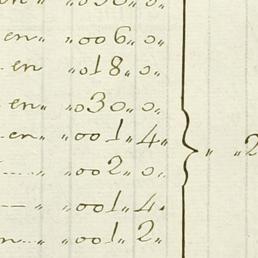 en „ 006 „ 0 „
en „ 018 „ 0 „
en „ 030 „ 0 „
en „ 001 „ 4 „
„ 002 „ 0 „ „ „ 2
— „ „ 001 „ 4 „
„ 001 „ 2 „